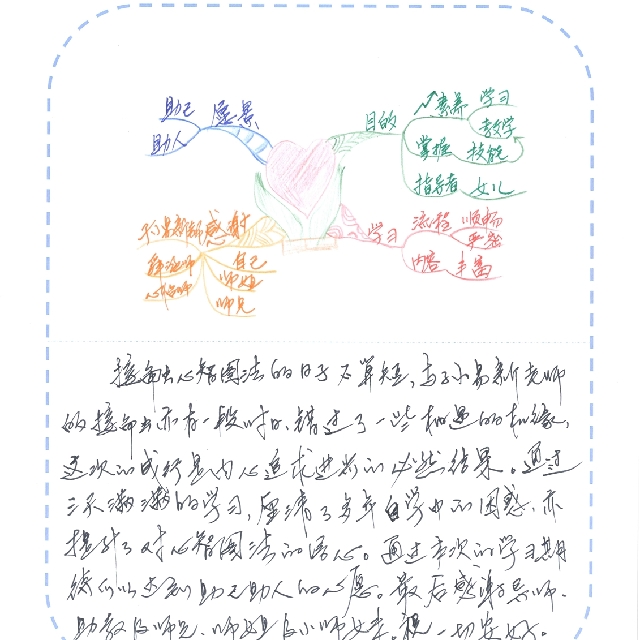 助己
愿景
助人
目的
素养
学习
教学
掌握
技能
指导者
女儿
学习
流程
顺畅
严密
内容
丰富
感谢
自己
师姐
师兄
接触心智图法的日子不算短，与小易新老师
的接触亦有一段时日，错过了一些相遇的机缘，
这次的成行是内心追求进步的必然结果。通过
三天满满的学习，厘清了多年自学中的困惑，亦
提升了对心智图法的信心。通过本次的学习期
待可以达到助己助人的心愿。最后感谢导师、
助教及师兄、师姐及小师妹等。祝一切安好。